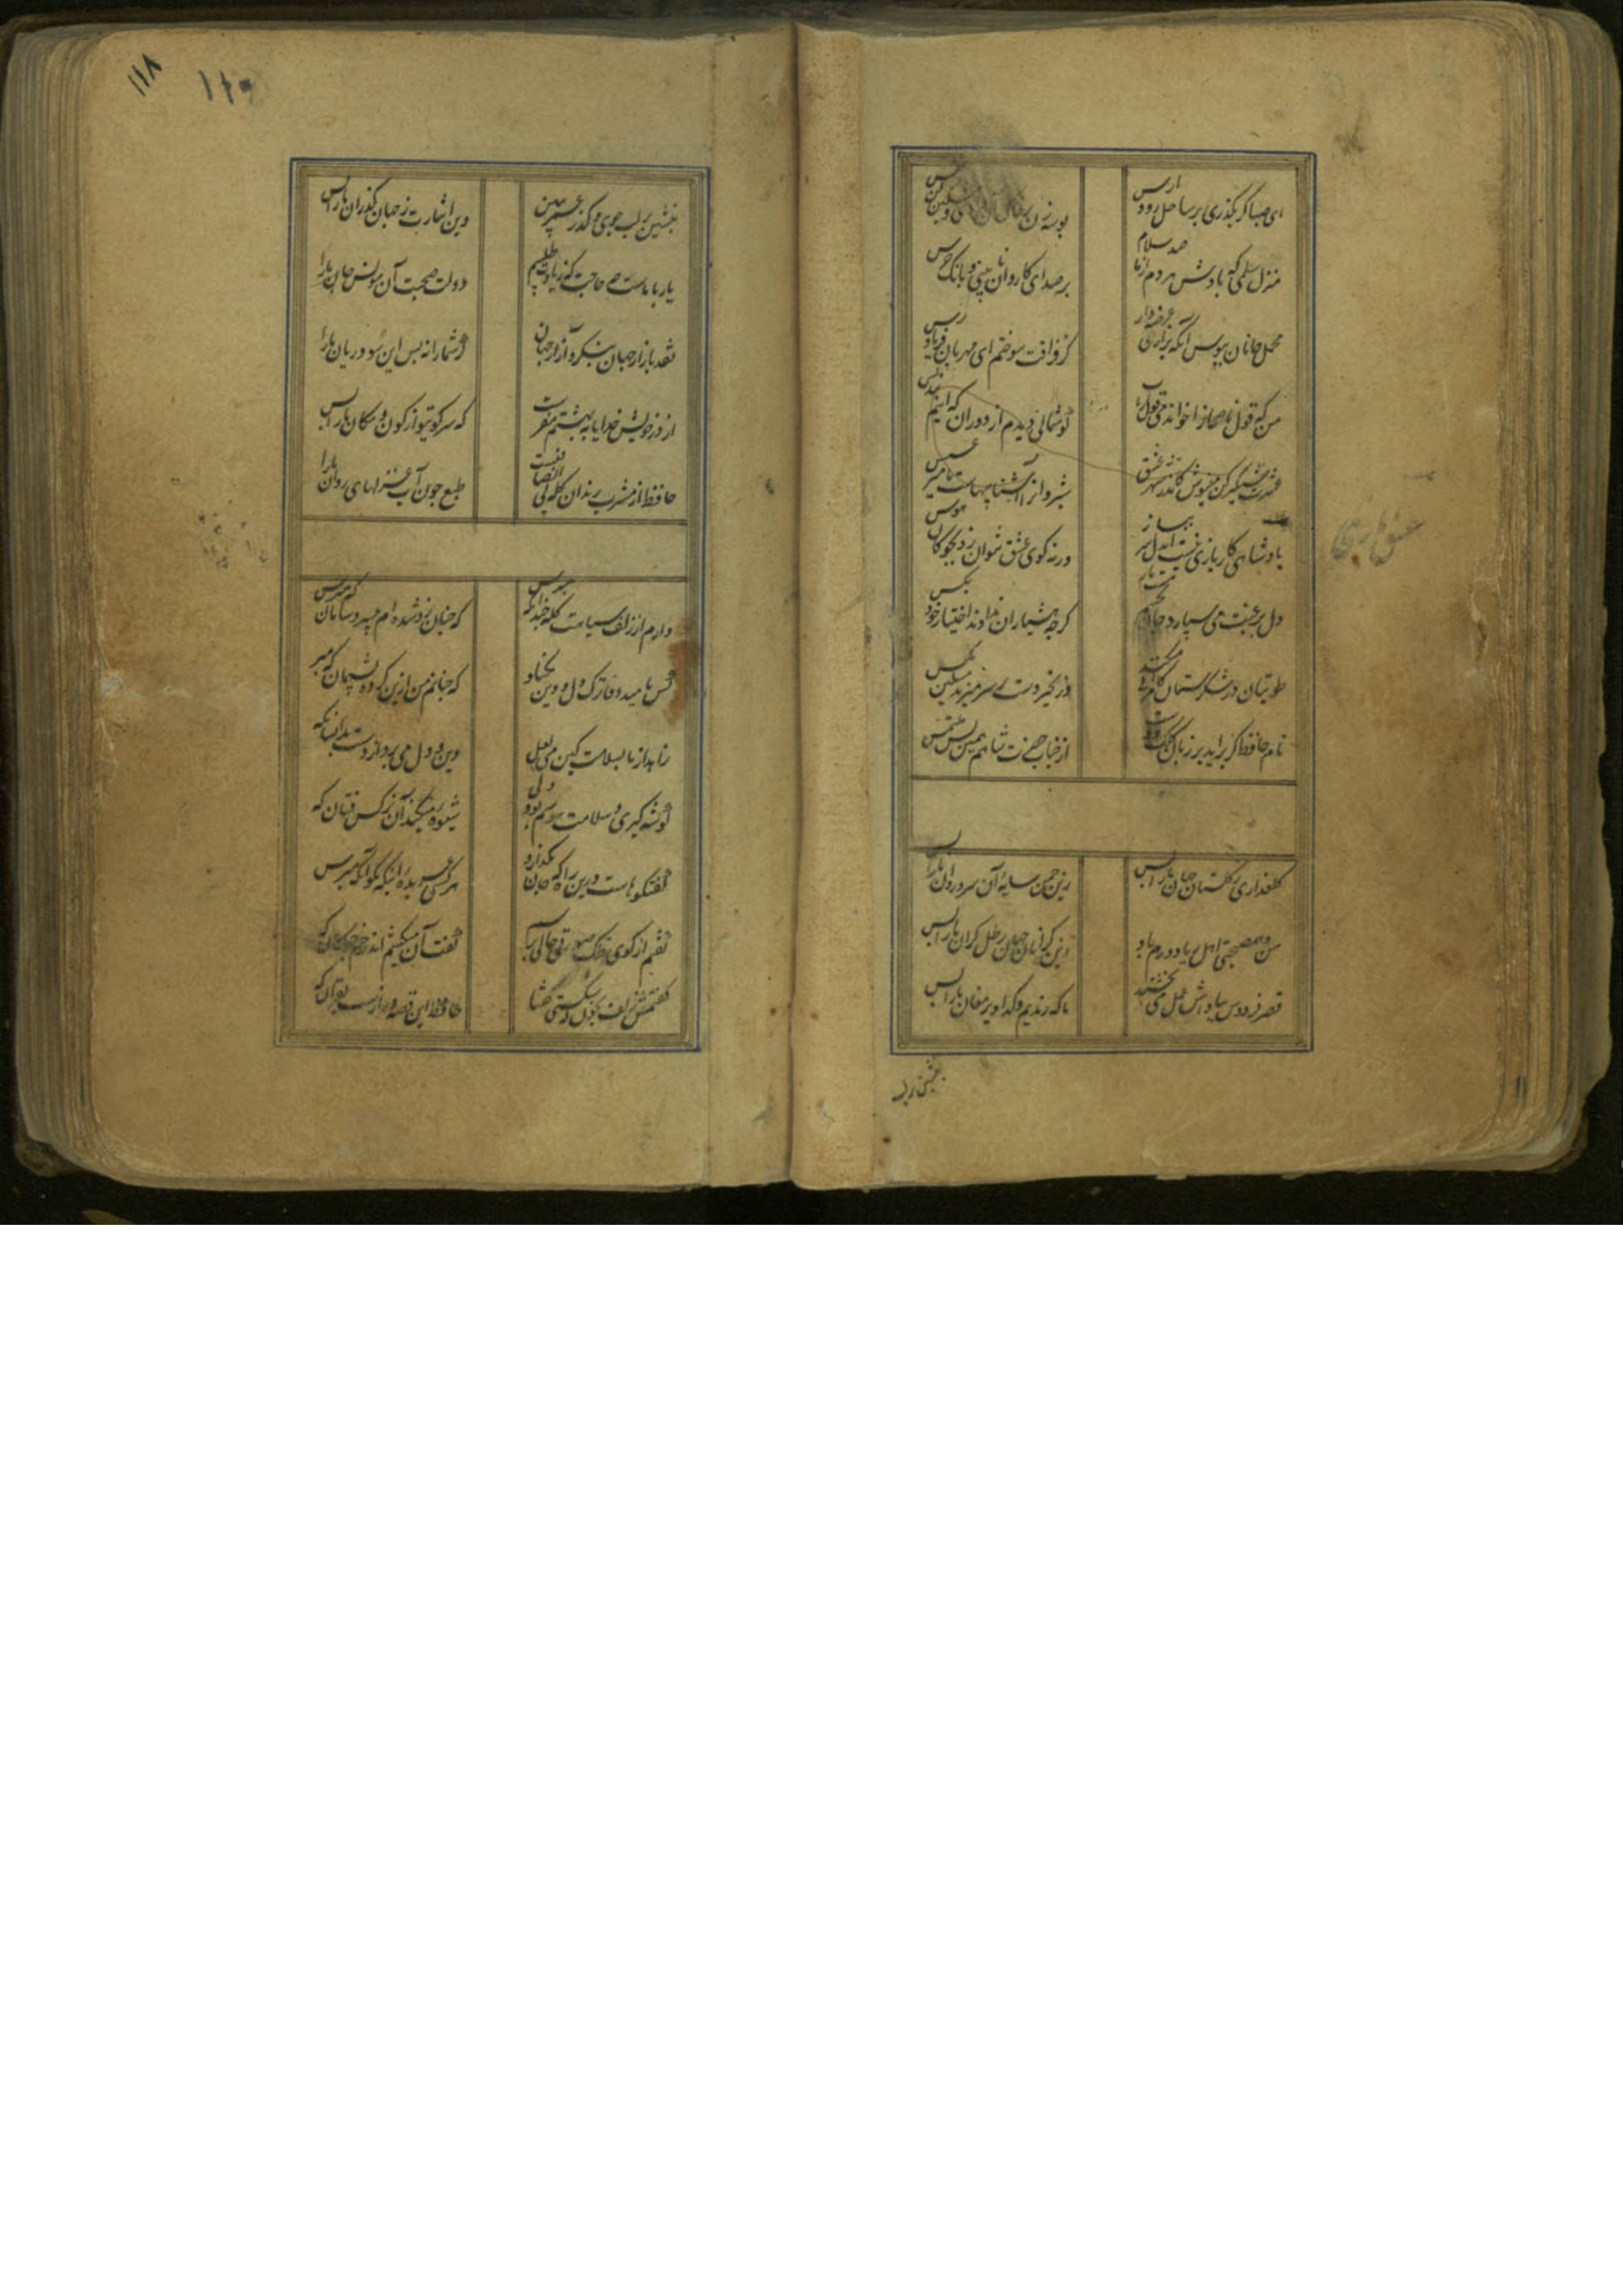 ای صبا گر بگذری بر ساحل رود ارس
بوسه زن بر خاک آن وادی و مشکین کن نفس
منزل سلمی که بادش هردم از ما صد سلام
پر صدای کاروانان بینی و بانک جرس
محمل جانان ببوس آنگه بزاری عرضه دار
کز فراقت سوختم ای مهربان فریاد رس
من که قول ناصحانرا خواندمی قول رباب
گوشمالی دیدم از دوران که اینم پند بس
عشرت شبگیر کن مینوش کاندر شهر عشق
شبروانرا آشناییهاست با میر عسس
بادشاهی کار بازی نیست ایدل سر بباز
ورنه گوی عشق نتوان زد بچوگان هوس
دل برغبت می سپارد جان بچشم مست یار
گرچه هشیاران ندادند اختیار خود بکس
طوطیان در شکرستان کامرانی میکنند
وز تحیر دست بر سر میزند مسکین مگس
نام حافظ گر برآید بر زبان کلک دوست
از جناب حضرت شاهم همین بس ملتمس
گلعذاری ز گلستان جهان ما را بس
زین چمن سایه آن سرو روان ما را بس
من و همصحبتی اهل ریا دورم باد
از گرانان جهان رطل گران ما را بس
قصر فردوس بپاداش عمل می بخشند
ما که رندیم و گدا دیر مغان ما را بس
بنشین بر لب
۱۱۸
بنشین بر لب جوی و گذر عمر ببین
وین اشارت ز جهان گذران ما را بس
یار با ماست چه حاجت که زیادت طلبیم
دولت صحبت آن مونس جان ما را
نقد بازار جهان بنگر و آزار جهان
گر شما را نه بس این سود و زیان ما را
از در خویش خدایا به بهشتم مفرست
که سر کوی تو از کون و مکان ما را بس
حافظ از مشرب رندان گله بی انصافیست
طبع چون آب و غزلهای روان ما را
دارم از زلف سیاهت گله چندانکه مپرس
که چنان زو شده ام بی سر و سامان که مپرس
کس بامید وفا ترک دل و دین مکناد
که چنانم من ازین کرده پشیمان که مپر
زاهد از ما بسلامت کین می لعل
دین و دل می برد از دست بدانسانکه
گوشه گیری و سلامت هوسم بود ولی
شیوه میکند آن نرگس فتان که
گفتگوهاست درین راه که جان بگدازد
هر کسی عربده اینکه مگو آنکه مپرس
گفتم از گوی فلک صورت حالی پرسم
گفت آن میکشم اندر خم چوگان که
گفتمش زلف بخون که شکستی گفتا
حافظ این قصه درازست بقرآن که